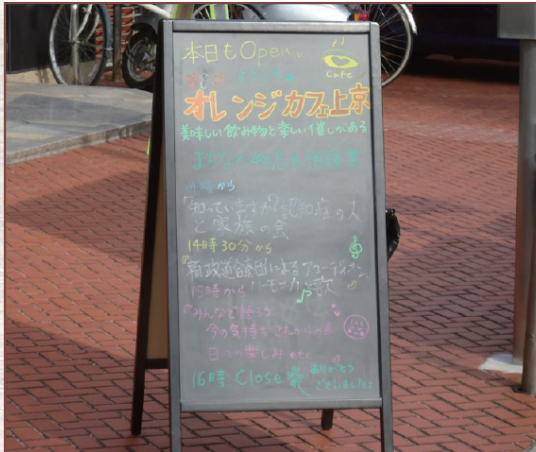 本日もOpen
Cafe
ようこそ
オレンジカフェ上京
美味しい飲み物と楽しい催しがある
まちなか
14時から
「知っていますか?認知症の人
と家族の会
14時30分から
によるアコーディオン、
15時から ハーモニカ 歌
みんなで語ろう
今の気持ち これからの
日々の楽しみ etc
16時 Close ありがとう
ございました